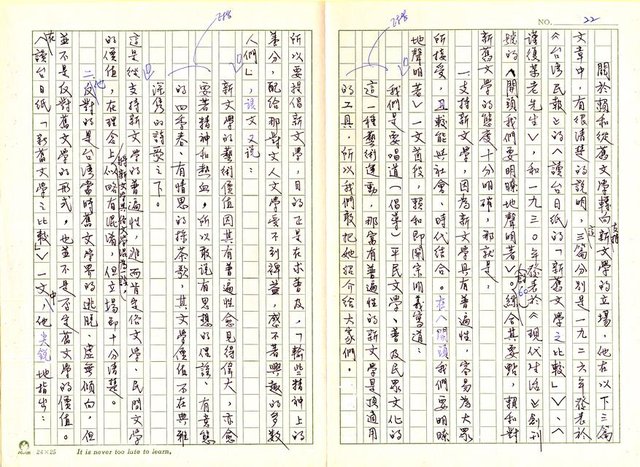 NO. 22
關於賴和從舊文學轉向支持新文學的立場,他在以下三篇
文章中,有很清楚的說明,三篇分別是一九二六年發表於
《台灣民報》的〈讀台日紙的「新舊文學之比較」〉、〈
謹復某老先生〉,和一九三〇年發表於《現代生活》創刊
號的〈開頭我們要明瞭地聲明著〉。綜合其要點,賴和對
新舊文學的態度十分明確,那就是:
一支持新文學,因為新文學具有普遍性,容易為大眾
所接受,且較能與社會、時代結合。在〈開頭我們要明瞭
地聲明著〉一文首段,賴和即開宗明義寫道:
我們是要唱道(倡導)平民文學、普及民眾文化的
這一種藝術運動,那富有普遍性的新文學是頂適用
的工具,所以我們敢把她介紹給大家們。
所以要提倡新文學,目的正是在求普及,「輸些精神上的
養分,配給那對文人文學要不到得益,感不著興趣的多數
人們」,該文又說:
新文學的藝術價值因其有普遍性愈見得偉大,亦愈
要著精神和熱血。所以敢說有思想的俚謠、有意態
的四季春、有情思的採茶歌,其文學價值不在典雅
深雋的詩歌之下。
這是從支持新文學的普遍性,進而肯定俗文學、民間文學
的價值,在理念上似略有混淆,但立場卻十分清楚。
二反對的是台灣當時舊文學界的逃脫、虛無傾向,但
並不是反對舊文學的形式,也並不是否定舊文學的價值。
在〈讀台日紙「新舊文學之比較」〉一文中,他更銳地指出:
24×25 It is never too late to learn.